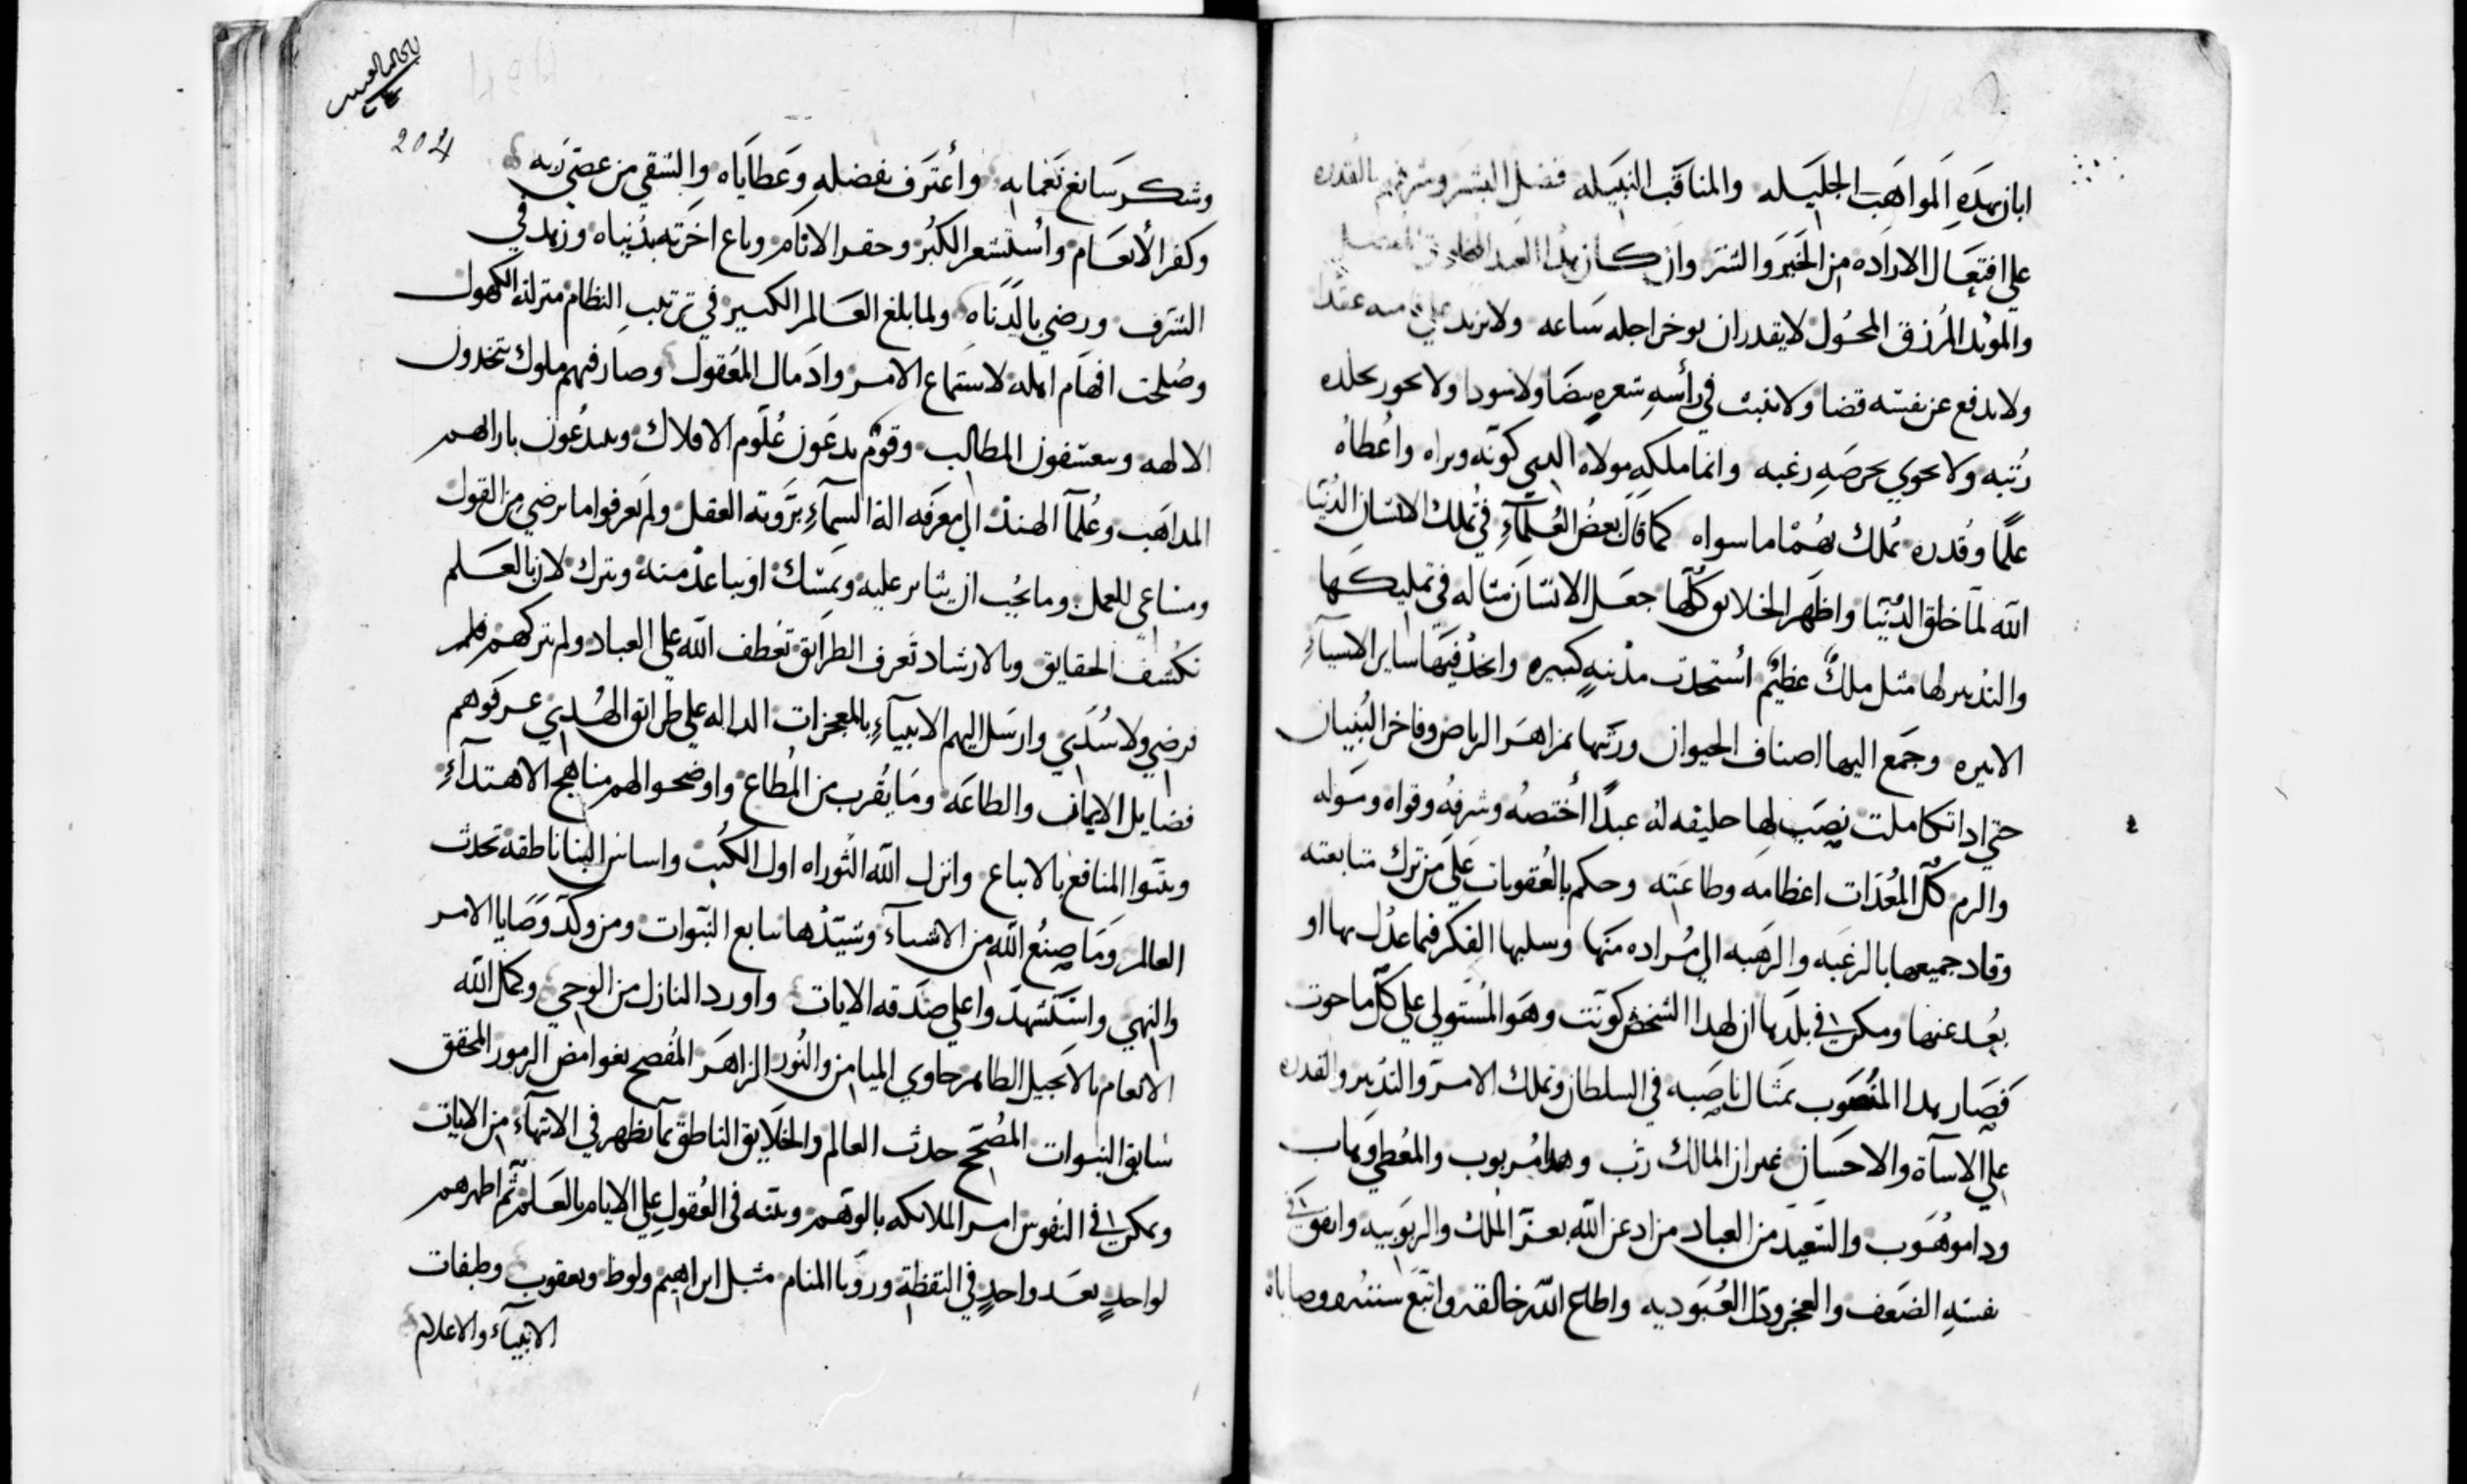 ابان بهده المواهب الجليله والمناقب النبيله فضل البشر وشرفهم بالقدره
علي افتعال الاراده من الخير والشر وان كان هدا العبد
والموبد المرزق المحول لا يقدر ان يوخر اجله ساعه ولا يزيد علي
ولا يدفع عن نفسه قضا ولا ينبت في رأسه شعره بيضا ولا سودا ولا يحوز بجلده
رتبه ولا يحوي بحرصه رغبه وانما ملكه مولاه الدي كونه وبراه واعطاه
علما وقدره تملك بهما ما سواه كما قال بعض العلمآء في تملك الانسان الدنيا
الله لما خلق الدنيا واظهر الخلايق كلها جعل الانسان مثاله في تمليكها
والتدبير لها مثل ملك عظيم استحدث مدينه كبيره واتخد فيها ساير الاشيآء
الاتيره وجمع اليها اصناف الحيوان وزينها بمزاهر الرياض وفاخر البنيان
حتي ادا تكاملت نصب لها خليفه له عبدا اختصه وشرفه وقواه وموله
والزم كل المعدات اعظامه وطاعته وحكم بالعقوبات علي من ترك متابعته
وقاد جميعها بالرغبه والرهبه الي مراده منها وسلبها الفكر فيما عدل بها او
بعد عنها ومكن في بلدها ان لهدا الشخص كونت وهو المستولي علي كل ما حوت
فصار هدا المنصوب بمثال ناصبه في السلطان وتملك الامر والتدبير والقدره
علي الاسآة والاحسان غير ان المالك رب وهدا مربوب والمعطي وهاب
ودا موهوب والسعيد من العباد من ادعن الله بعز الملك والربوبيه وايقن في
نفسه الضعف والعجز ودل العبوديه واطاع الله خالقه واتبع سننه ووصاياه
204
وشكر سابغ نعمايه واعترف بفضله وعطاياه والشقي من عصي ربه
وكفر الأنعام واستشعر الكبر وحقر الانام وباع اخرته بدنياه وزهد في
الشرف ورضي بالدناه ولما بلغ العالم الكبير في ترتيب النظام منزلة الكهول
وصلحت افهام اهله لاستماع الامر وادمال المعقول وصار فيهم ملوك يتخدون
الالهه ويعتسفون المطالب وقوم يدعون علوم الافلاك ويبدعون بارايهم
المداهب وعلمآ الهند الي معرفه الة السمآء بروية العقل ولم يعرفوا ما يرضي من القول
ومساعي للعمل وما يجب ان يثابر عليه ويمسك او يباعد منه ويترك لان بالعلم
تكشف الحقايق وبالارشاد تعرف الطرائق تعطف الله علي العباد ولم يتركهم
فرضي ولا سدي وارسل اليهم الانبيآء بالمعجزات الداله علي طرائق الهدي عرفوهم
فضايل الايمان والطاعه وما يقرب من المطاع واوضحوا لهم مناهج الاهتدآء
وبينوا المنافع بالاتباع وانزل الله التوراه اول الكتب واساس البنا ناطقة بحدث
العالم وما صنع الله من الاشيآء وشيدها بتابع النبوات ومن وكد وصايا الامر
والنهي واستشهدوا علي صدقه الايات واورد النازل من الوحي وكمل الله
الانعام بالانجيل الطاهر حاوي الميامن والنور الزاهر المفصح بغوامض الرموز المحقق
سابق النبوات المصحح حدث العالم والخلايق الناطق بما يظهر في الانتهآء من الايات
وتمكن في النفوس امر الملايكه بالوهم وبينه في العقول علي الايام بالعلم ثم اظهرهم
لواحد بعد واحد في اليقظة ورويا المنام مثل ابراهيم ولوط ويعقوب وطبقات
الانبيآء والاعلام